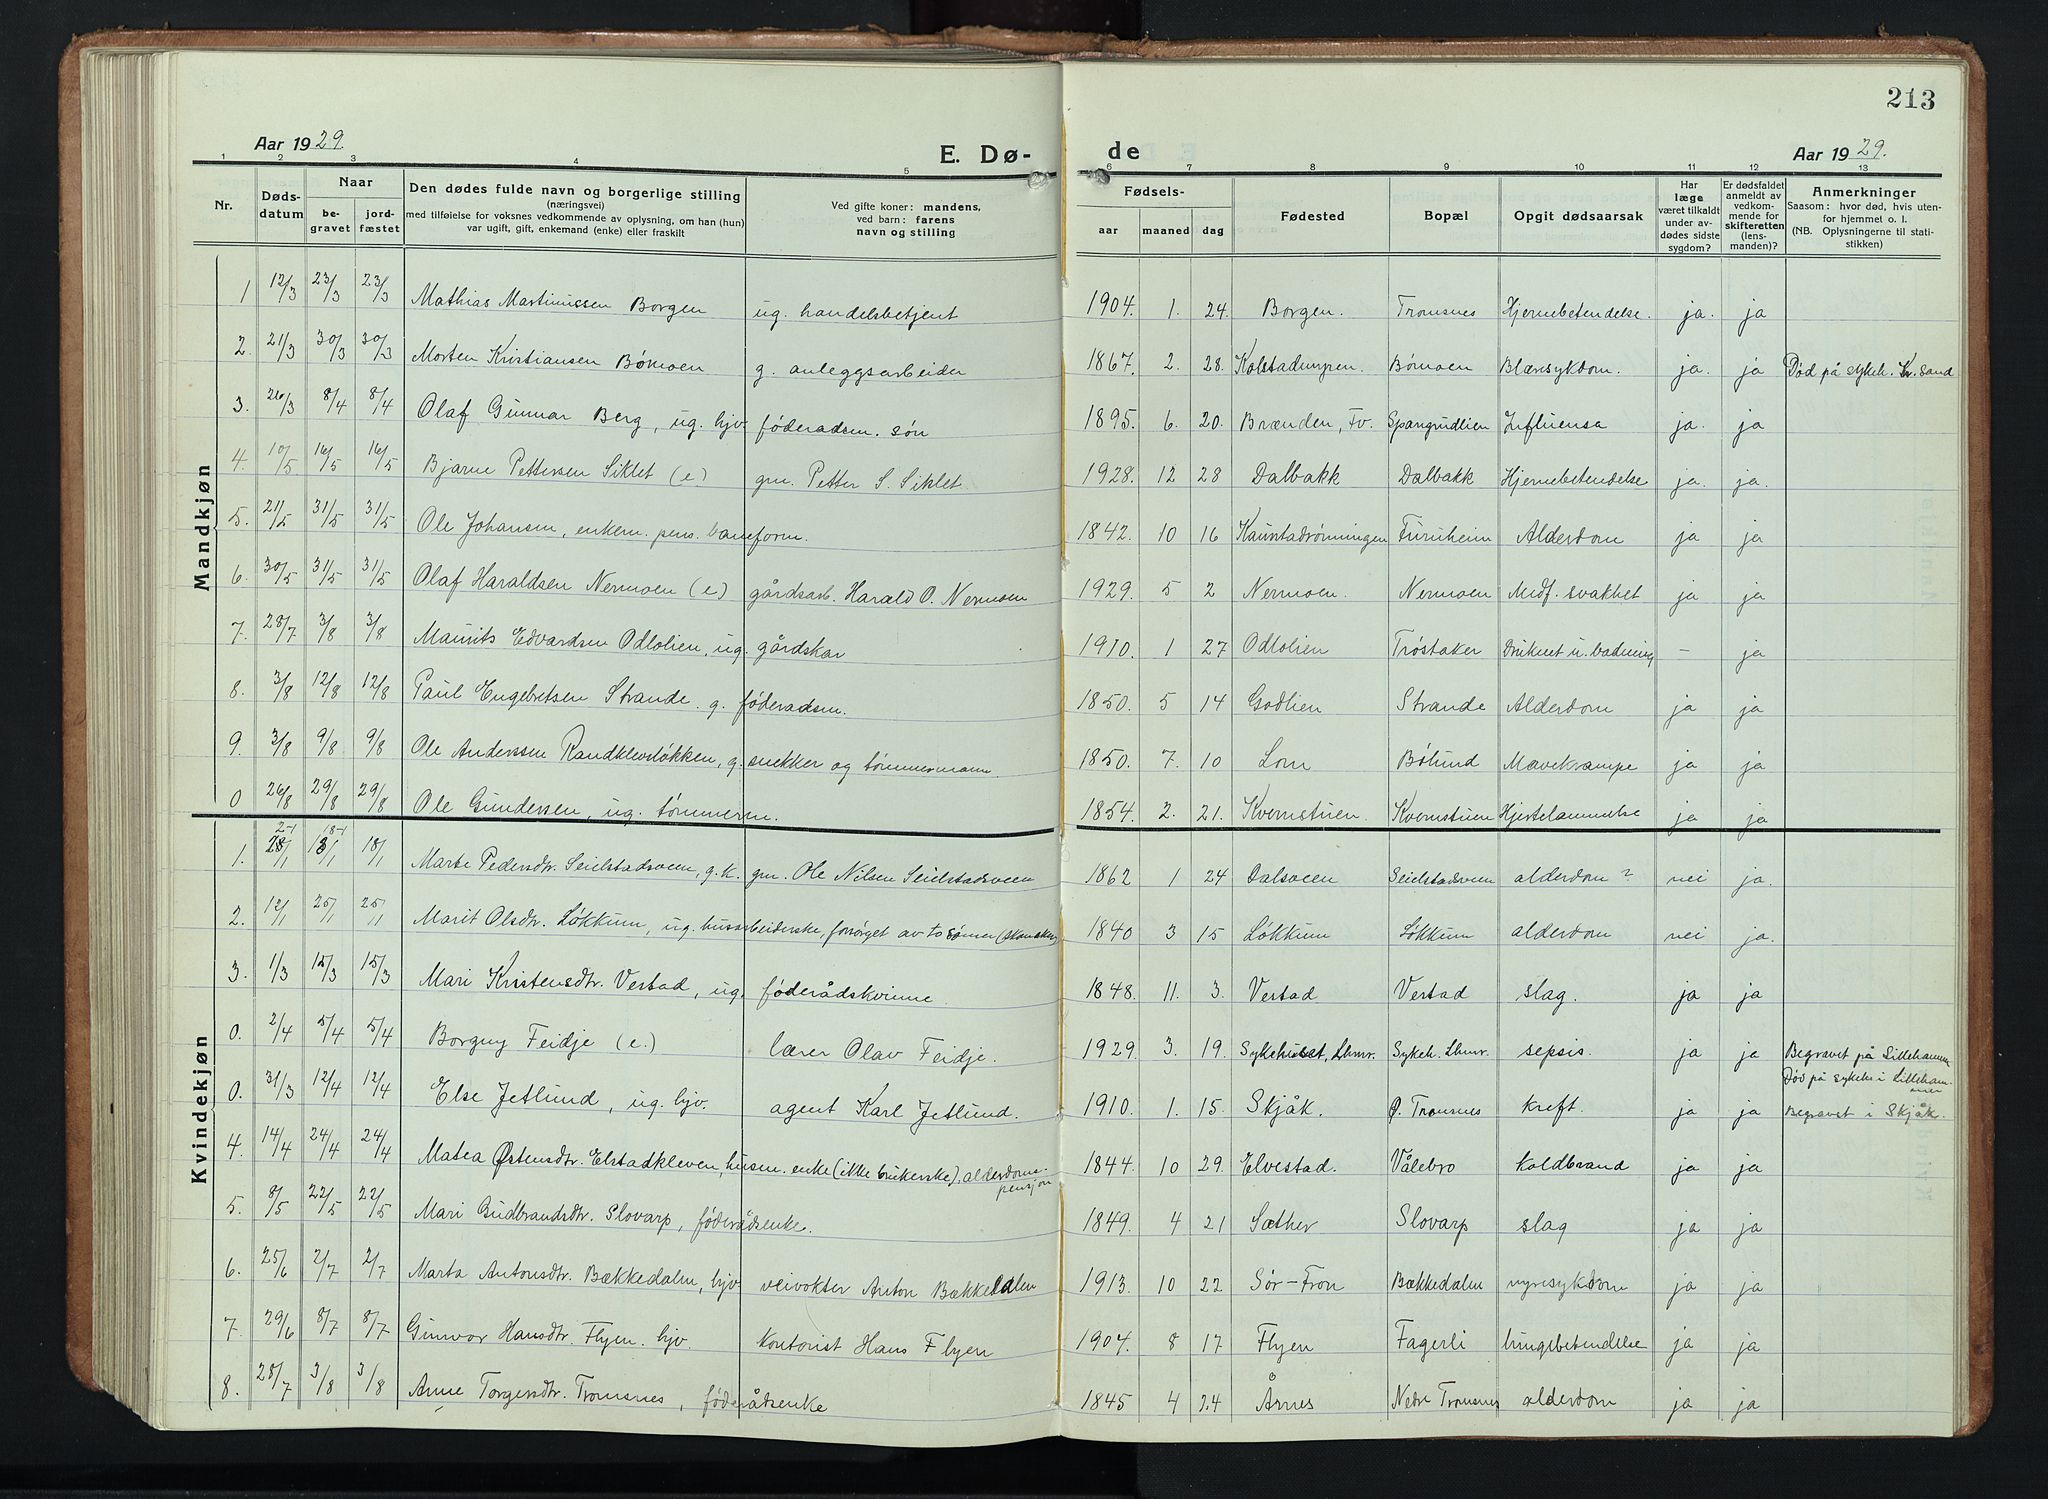 213
Aar 1929.
E. Dø-
de
Aar 1929.
1 2 3 4 5 6 7 8 9 10 11 12 13
Nr.
Døds-
datum
Naar
be-
gravet
jord-
fæstet
Den dødes fulde navn og borgerlige stilling
(næringsvei)
med tilføielse for voksnes vedkommende av oplysning, om han (hun)
var ugift, gift, enkemand (enke) eller fraskilt
Ved gifte koner: mandens,
ved barn: farens
navn og stilling
Fødsels-
aar
maaned
dag
Fødested
Bopæl
Opgit dødsaarsak
Har
læge
været tilkaldt
under av-
dødes sidste
sygdom?
Er dødsfaldet
anmeldt av
vedkom-
mende for
skifteretten
(lens-
manden)?
Anmerkninger
Saasom: hvor død, hvis uten-
for hjemmet o. l.
(NB. Oplysningerne til stati-
stikken)
Mandkjøn
1 12/3 23/3 23/3 Mathias Martinussen Borgen ug. handelsbetjent 1904. 1. 24. Borgen. Tromsnes Hjernebetendelse. ja. ja
2. 21/3 30/3 30/3 Morten Kristiansen Bømoen g. anleggsarbeider 1867. 2. 28. Kolstadumpen. Bømoen Blæresykdom. ja. ja Død på sykeh. Kr.sand
3. 26/3 8/4 8/4 Olaf Gunnar Berg, ug. hjv. føderadsm. søn 1895. 6. 20. Brænden, Fv. Spangrudlien Influensa ja. ja
4. 10/5 16/5 16/5 Bjarne Pettersen Siklet (e.) gm. Petter S. Siklet 1928. 12 28 Dalbakk Dalbakk Hjernebetendelse ja. ja.
5. 21/5 31/5 31/5 Ole Johansen, enkem. pens. baneform. 1842. 10 16 Kaunstadrønningen Furuheim Alderdom ja ja
6. 30/5 31/5 31/5 Olaf Haraldsen Nermoen (e) gårdsarb. Harald O. Nermoen 1929. 5 2 Nermoen. Nermoen Medf. svakhet ja ja
7. 28/7 3/8 3/8 Maurits Edvardsen Odlolien, ug. gårdskar 1910. 1 27 Odlolien Trøstaker Druknet u. badning – ja
8. 3/8 12/8 12/8 Paul Engebretsen Strande. g. føderadsm. 1850. 5 14 Godlien Strande Alderdom ja ja
9. 3/8 9/8 9/8 Ole Anderssen Randklevsløkken, g. snekker og tømmermann. 1850. 7. 10 Lom Bølund Mavekrampe ja ja
0 26/8 29/8 29/8 Ole Gundersen, ug. tømmerm. 1854. 2. 21. Kvernstuen. Kvernstuen Hjertelammelse ja ja
Kvindekjøn
1. 2-1 18-1 18/1 Marte Pedersdtr. Seielstadsveen, g.k. gm. Ole Nilsen Seielstadsveen 1862 1 24 Dalsveen Seielstadsveen alderdom? nei ja.
2. 12/1 25/1 25/11 Marit Olsdtr. Løkkum, ug. husarbeiderske, forsørget av to sønner 1840 3 15 Løkkum Løkkum alderdom nei ja.
3. 1/3 15/3 15/3 Mari Kristensdtr. Vestad, ug. føderådskvinne. 1848. 11. 3. Vestad Vestad slag. ja ja
0. 2/4 5/4 5/4 Borgny Feidje (e.) lærer Olav Feidje. 1929. 3. 19. Sykehuset, Lhmr. Sykeh. Lhmr. sepsis. ja ja Begravet på Lillehammer
0. 31/3 12/4 12/4 Else Jetlund, ug. hjv. agent Karl Jetlund. 1910. 1. 15. Skjåk. Ø. Tromsnes kreft. ja ja Død på sykeh. i Lilleham-
mer
Begravet i Skjåk.
4. 14/4 24/4 24/4 Matea Østensdtr. Elstadkleven, husm. enke (ikke brukerske). alderdoms-
pensjon 1844. 10 29. Elvestad. Vålebro koldbrand ja ja
5. 8/5 22/5 22/5 Mari Gudbrandsdtr. Slovarp, føderådsenke. 1849. 4 21 Sæther Slovarp slag ja ja
6. 25/6 2/7 2/7 Marta Antonsdtr. Bækkedalen, hjv veivokter Anton Bækkedalen 1913. 10 22 Sør-Fron Bækkedalen nyresykdom ja ja
7. 29/6 8/7 8/7 Gunvor Hansdtr. Flyen. hjv. kontorist Hans Flyen 1904. 8 17 Flyen Fagerli lungebetendelse ja ja
8. 28/7 3/8 3/8 Anne Torgersdtr. Tromsnes, føderådsenke 1845 4 24 Årnes Nedre Tromsnes alderdom ja ja